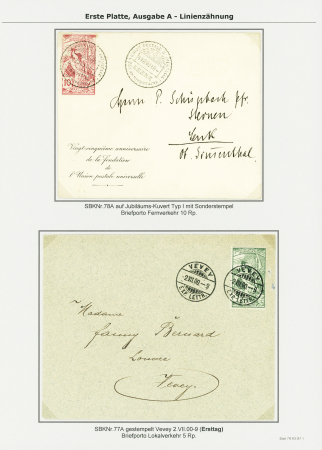 Erste Platte, Ausgabe A - Linienzähnung
10
Herrn P. Schüpbach Pfr.
Lenk
Vingt-cinquième anniversaire
de la fondation
de l'Union postale universelle
SBKNr.78A auf Jubiläums-Kuvert Typ I mit Sonderstempel
Briefporto Fernverkehr 10 Rp.
VEVEY
-2.VII.00.-9
VEVEY
-2.VII.00.-9
Madame
Fanny Bernard
Louvre
Vevey.
SBKNr.77A gestempelt Vevey 2.VII.00-9 (Ersttag)
Briefporto Lokalverkehr 5 Rp.